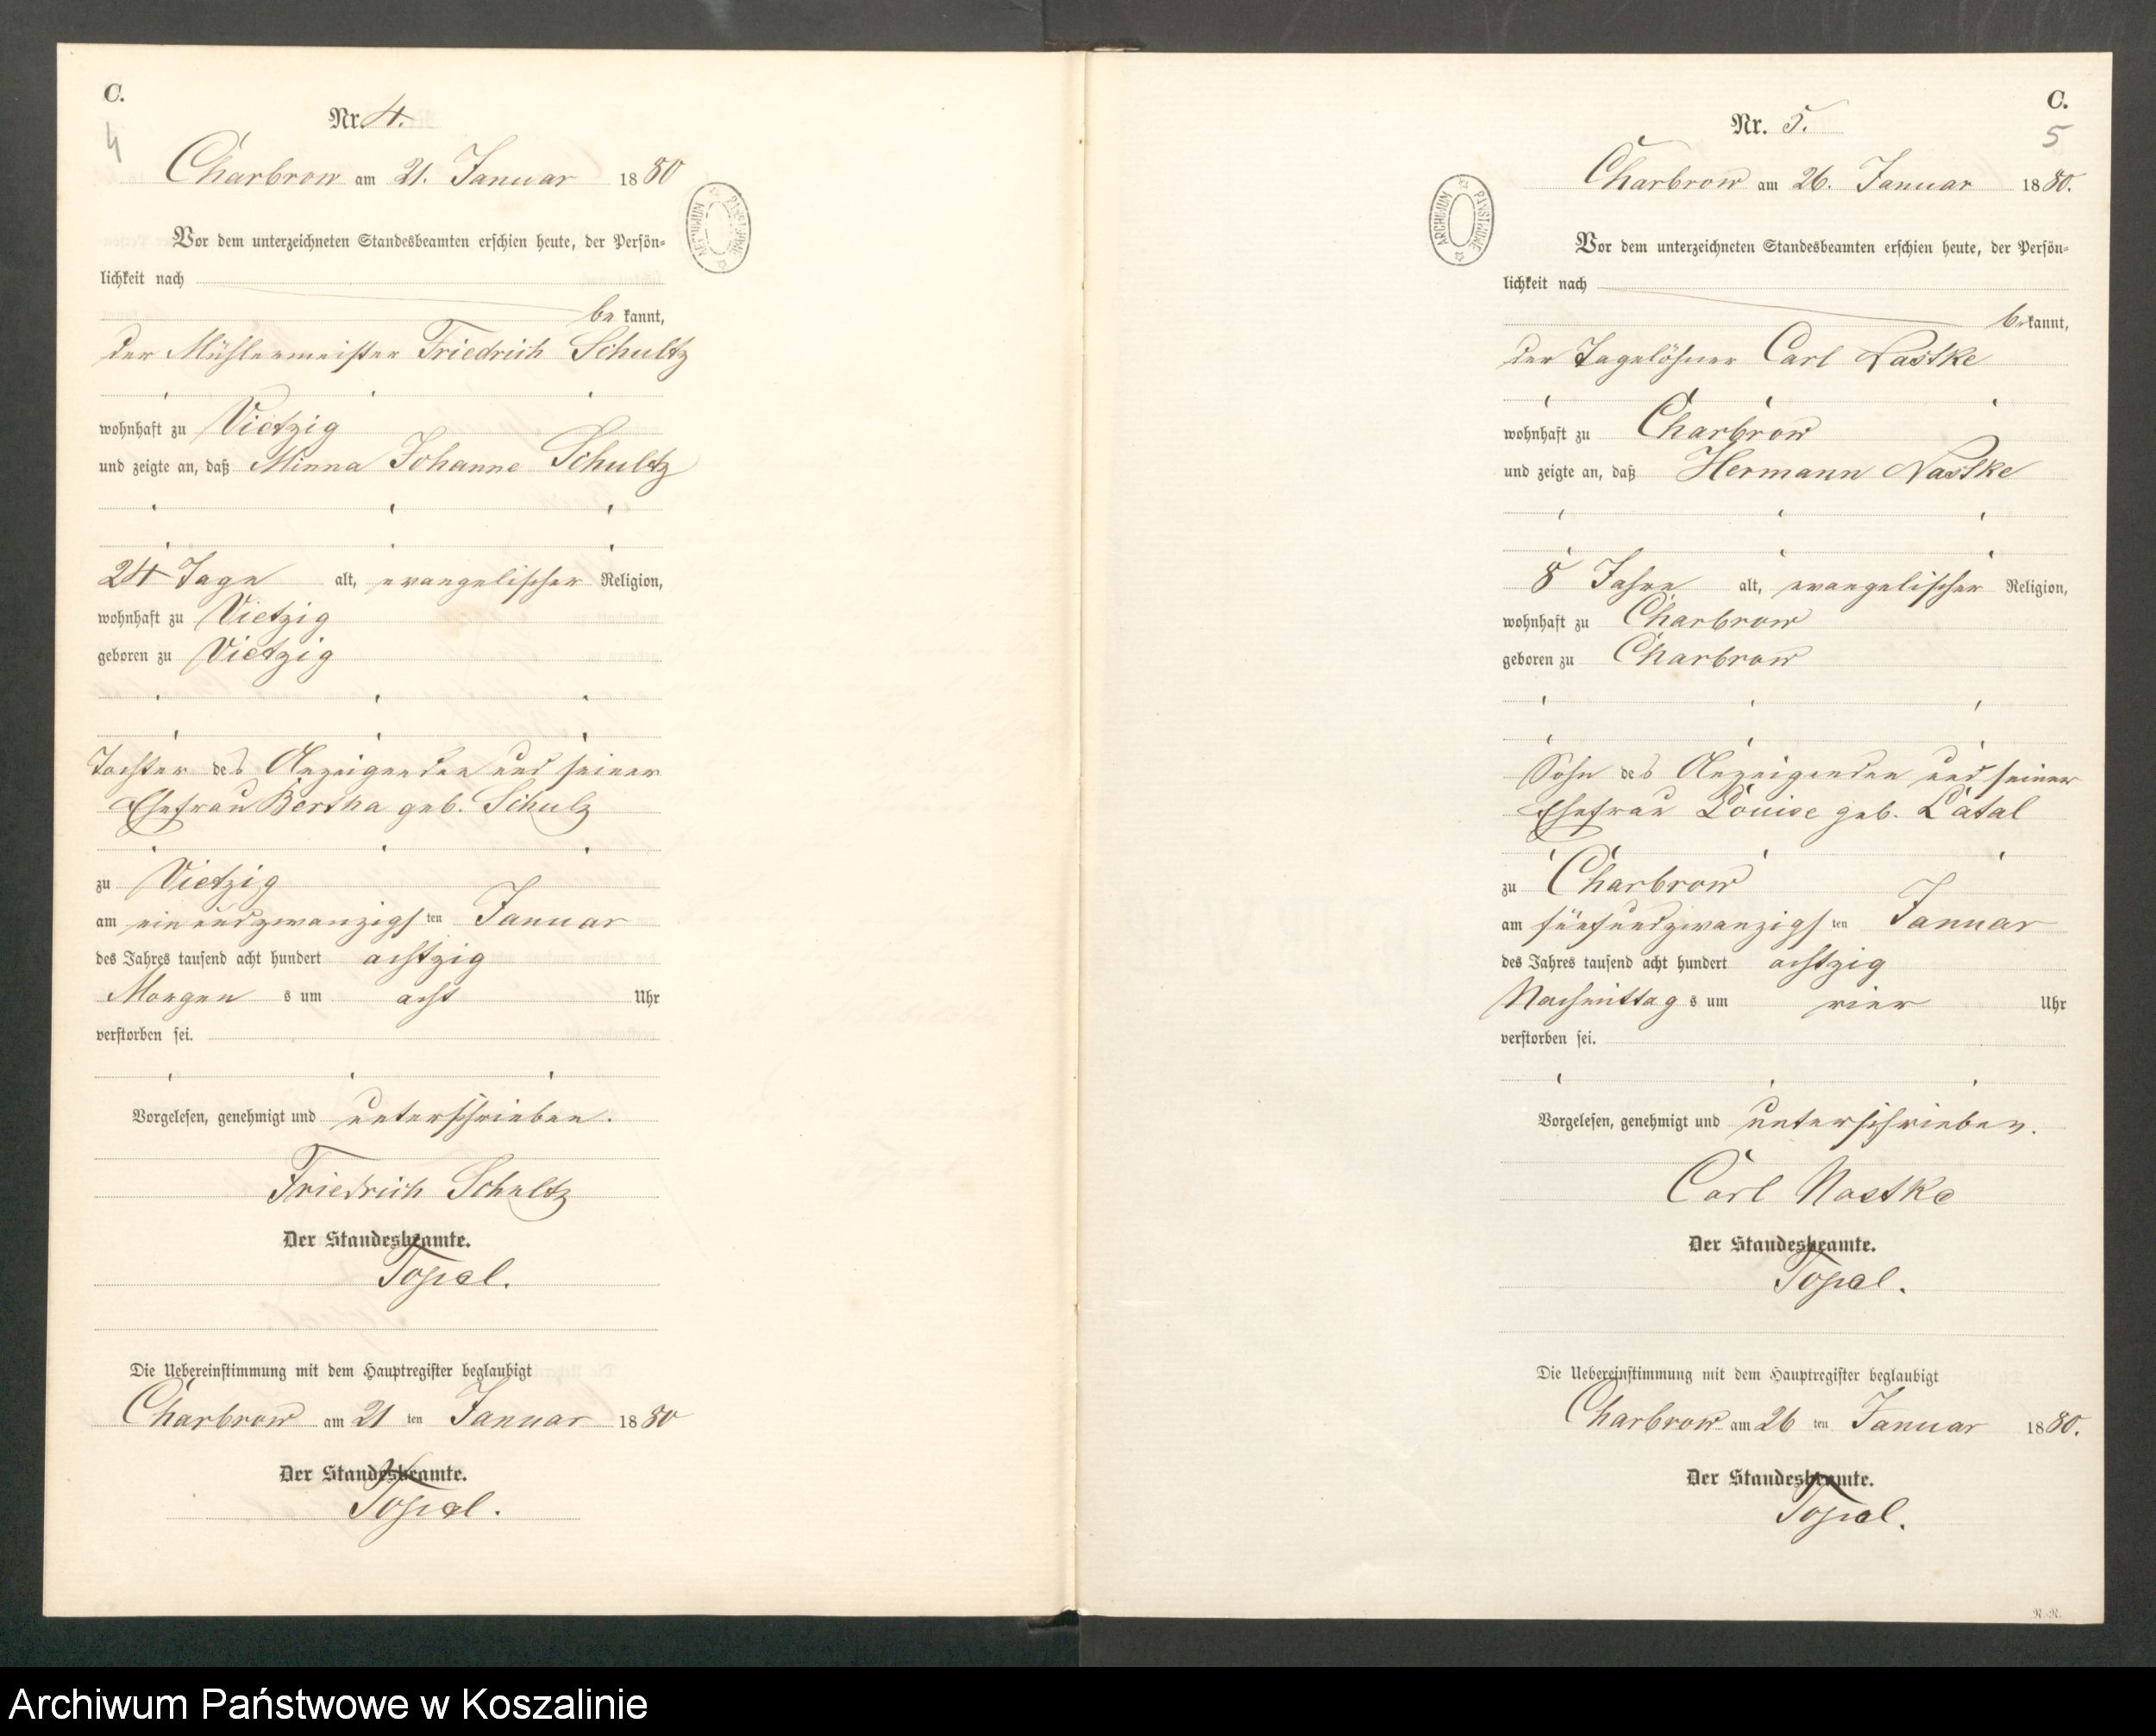 C.
4
Nr. 4.
Charbrow am 21. Januar 1880
ARCHIWUM PAŃSTWOWE
Vor dem unterzeichneten Standesbeamten erschien heute, der Persön-
lichkeit nach
be kannt,
der Mühlenmeister Friedrich Schultz
wohnhaft zu Vietzig
und zeigte an, daß Minna Johanne Schultz
24 Tage alt, evangelischer Religion,
wohnhaft zu Vietzig
geboren zu Vietzig
Tochter des Anzeigenden und seiner
Ehefrau Bertha geb. Schulz
zu Vietzig
am einundzwanzigsten Januar
des Jahres tausend acht hundert achtzig
Morgens um acht Uhr
verstorben sei.
Vorgelesen, genehmigt und unterschrieben.
Friedrich Schultz
Der Standesbeamte.
Topel.
Die Uebereinstimmung mit dem Hauptregister beglaubigt
Charbrow am 21 ten Januar 1880
Der Standesbeamte.
Topel.
C.
5
Nr. 5.
Charbrow am 26. Januar 1880.
ARCHIWUM PAŃSTWOWE
Vor dem unterzeichneten Standesbeamten erschien heute, der Persön-
lichkeit nach
bekannt,
der Tagelöhner Carl Nastke
wohnhaft zu Charbrow
und zeigte an, daß Hermann Nastke
8 Jahre alt, evangelischer Religion,
wohnhaft zu Charbrow
geboren zu Charbrow
Sohn des Anzeigenden und seiner
Ehefrau Louise geb. Latal
zu Charbrow
am fünfundzwanzigsten Januar
des Jahres tausend acht hundert achtzig
Nachmittags um vier Uhr
verstorben sei.
Vorgelesen, genehmigt und unterschrieben.
Carl Nastke
Der Standesbeamte.
Topel.
Die Uebereinstimmung mit dem Hauptregister beglaubigt
Charbrow am 26 ten Januar 1880.
Der Standesbeamte.
Topel.
R.-R.
Archiwum Państwowe w Koszalinie